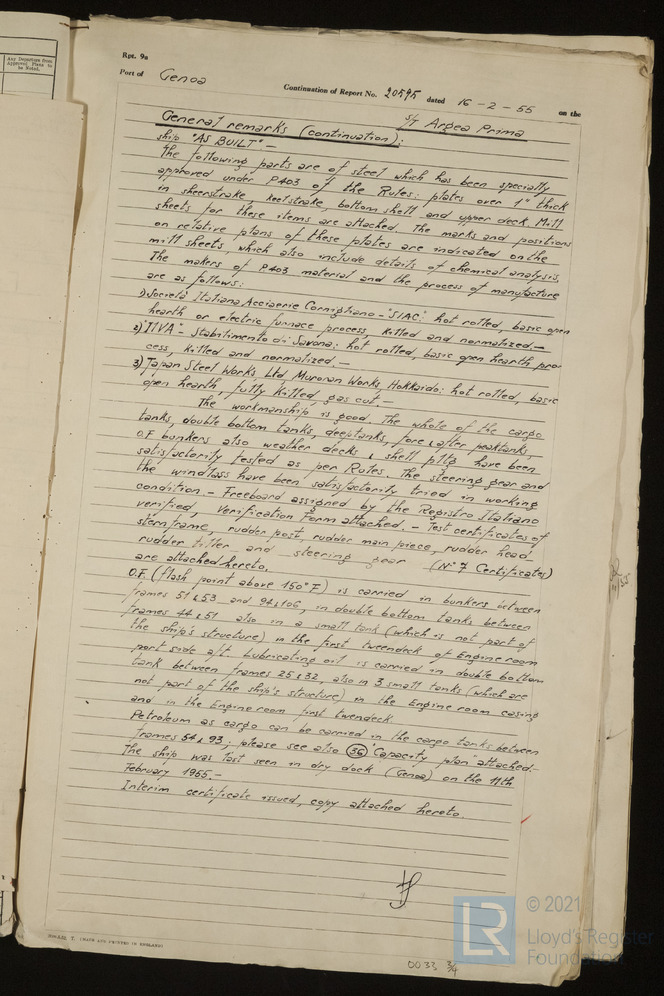 Any Departure from
Approved Plans to
be Noted.
Rpt. 9a
Port of Genoa
Continuation of Report No. 20595 dated 16-2-55 on the
S/T Argea Prima
General remarks (continuation):
ship "AS BUILT" -
The following parts are of steel which has been specially
approved under P403 of the Rules: plates over 1" thick
in sheerstrake, keelstrake, bottom shell and upper deck. Mill
sheets for these items are attached. The marks and positions
on relative plans of these plates are indicated on the
mill sheets, which also include details of chemical analysis.
The makers of P403 material and the process of manufacture
are as follows:
1) Società Italiana Acciaierie Cornigliano - "SIAC" hot rolled, basic open
hearth or electric furnace process, killed and normalized. -
2) "ILVA" - Stabilimento di Savona: hot rolled, basic open hearth pro-
cess, killed and normalized. -
3) Japan Steel Works Ltd Muroran Works, Hokkaido: hot rolled, basic
open hearth fully killed, gas cut. -
The workmanship is good. The whole of the cargo
tanks, double bottom tanks, deeptanks, fore & after peaktanks,
O.F bunkers also weather decks & shell pltg have been
satisfactorily tested as per Rules. The steering gear and
the windlass have been satisfactorily tried in working
condition - Freeboard assigned by the Registro Italiano
verified, Verification Form attached. - Test certificates of
sternframe, rudder post, rudder main piece, rudder head
rudder tiller and steering gear (No 7 Certificates)
are attached hereto.
O.F. (flash point above 150°F) is carried in bunkers between
frames 51 & 53 and 94 & 106, in double bottom tanks between
frames 44 & 51 also in a small tank (which is not part of
the ship's structure) in the first tweendeck of Engine room
port side aft. Lubricating oil is carried in double bottom
tank between frames 25 & 32, also in 3 small tanks (which are
not part of the ship's structure) in the Engine room casing
and in the Engine room first tweendeck
Petroleum as cargo can be carried in the cargo tanks between
frames 54 & 93, please see also 36 "Capacity plan" attached -
The ship was last seen in dry dock (Genoa) on the 11th
February 1955. -
Interim certificate issued, copy attached hereto.
T. (MADE AND PRINTED IN ENGLAND)
0033 3/4
LR
© 2021
Lloyd's Register
Foundation